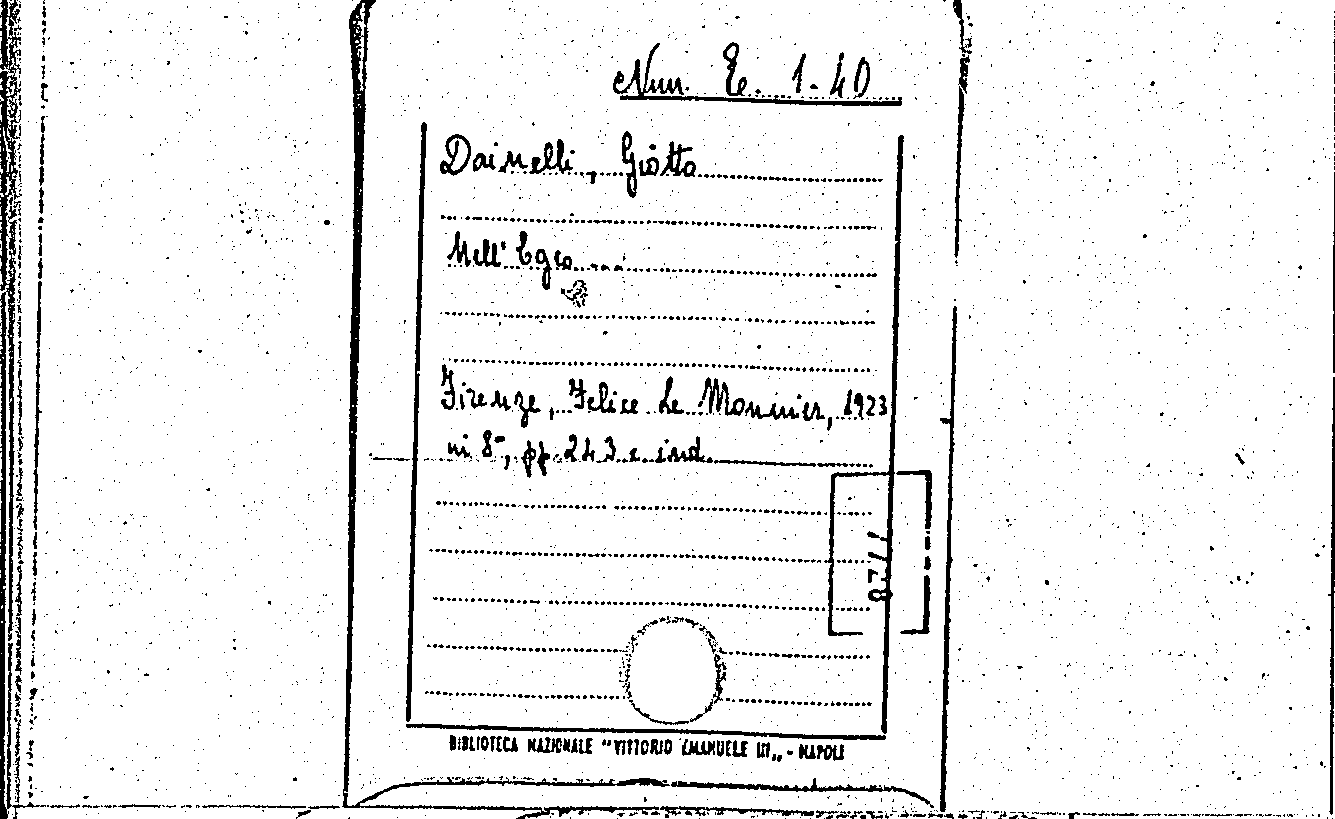 Num. E. 1-40
Dainelli, Giotto
Nell' Egeo ...
Firenze, Felice Le Monnier, 1923
in 8°, pp. 243 e ind.
7728
BIBLIOTECA NAZIONALE "VITTORIO EMANUELE III„ - NAPOLI